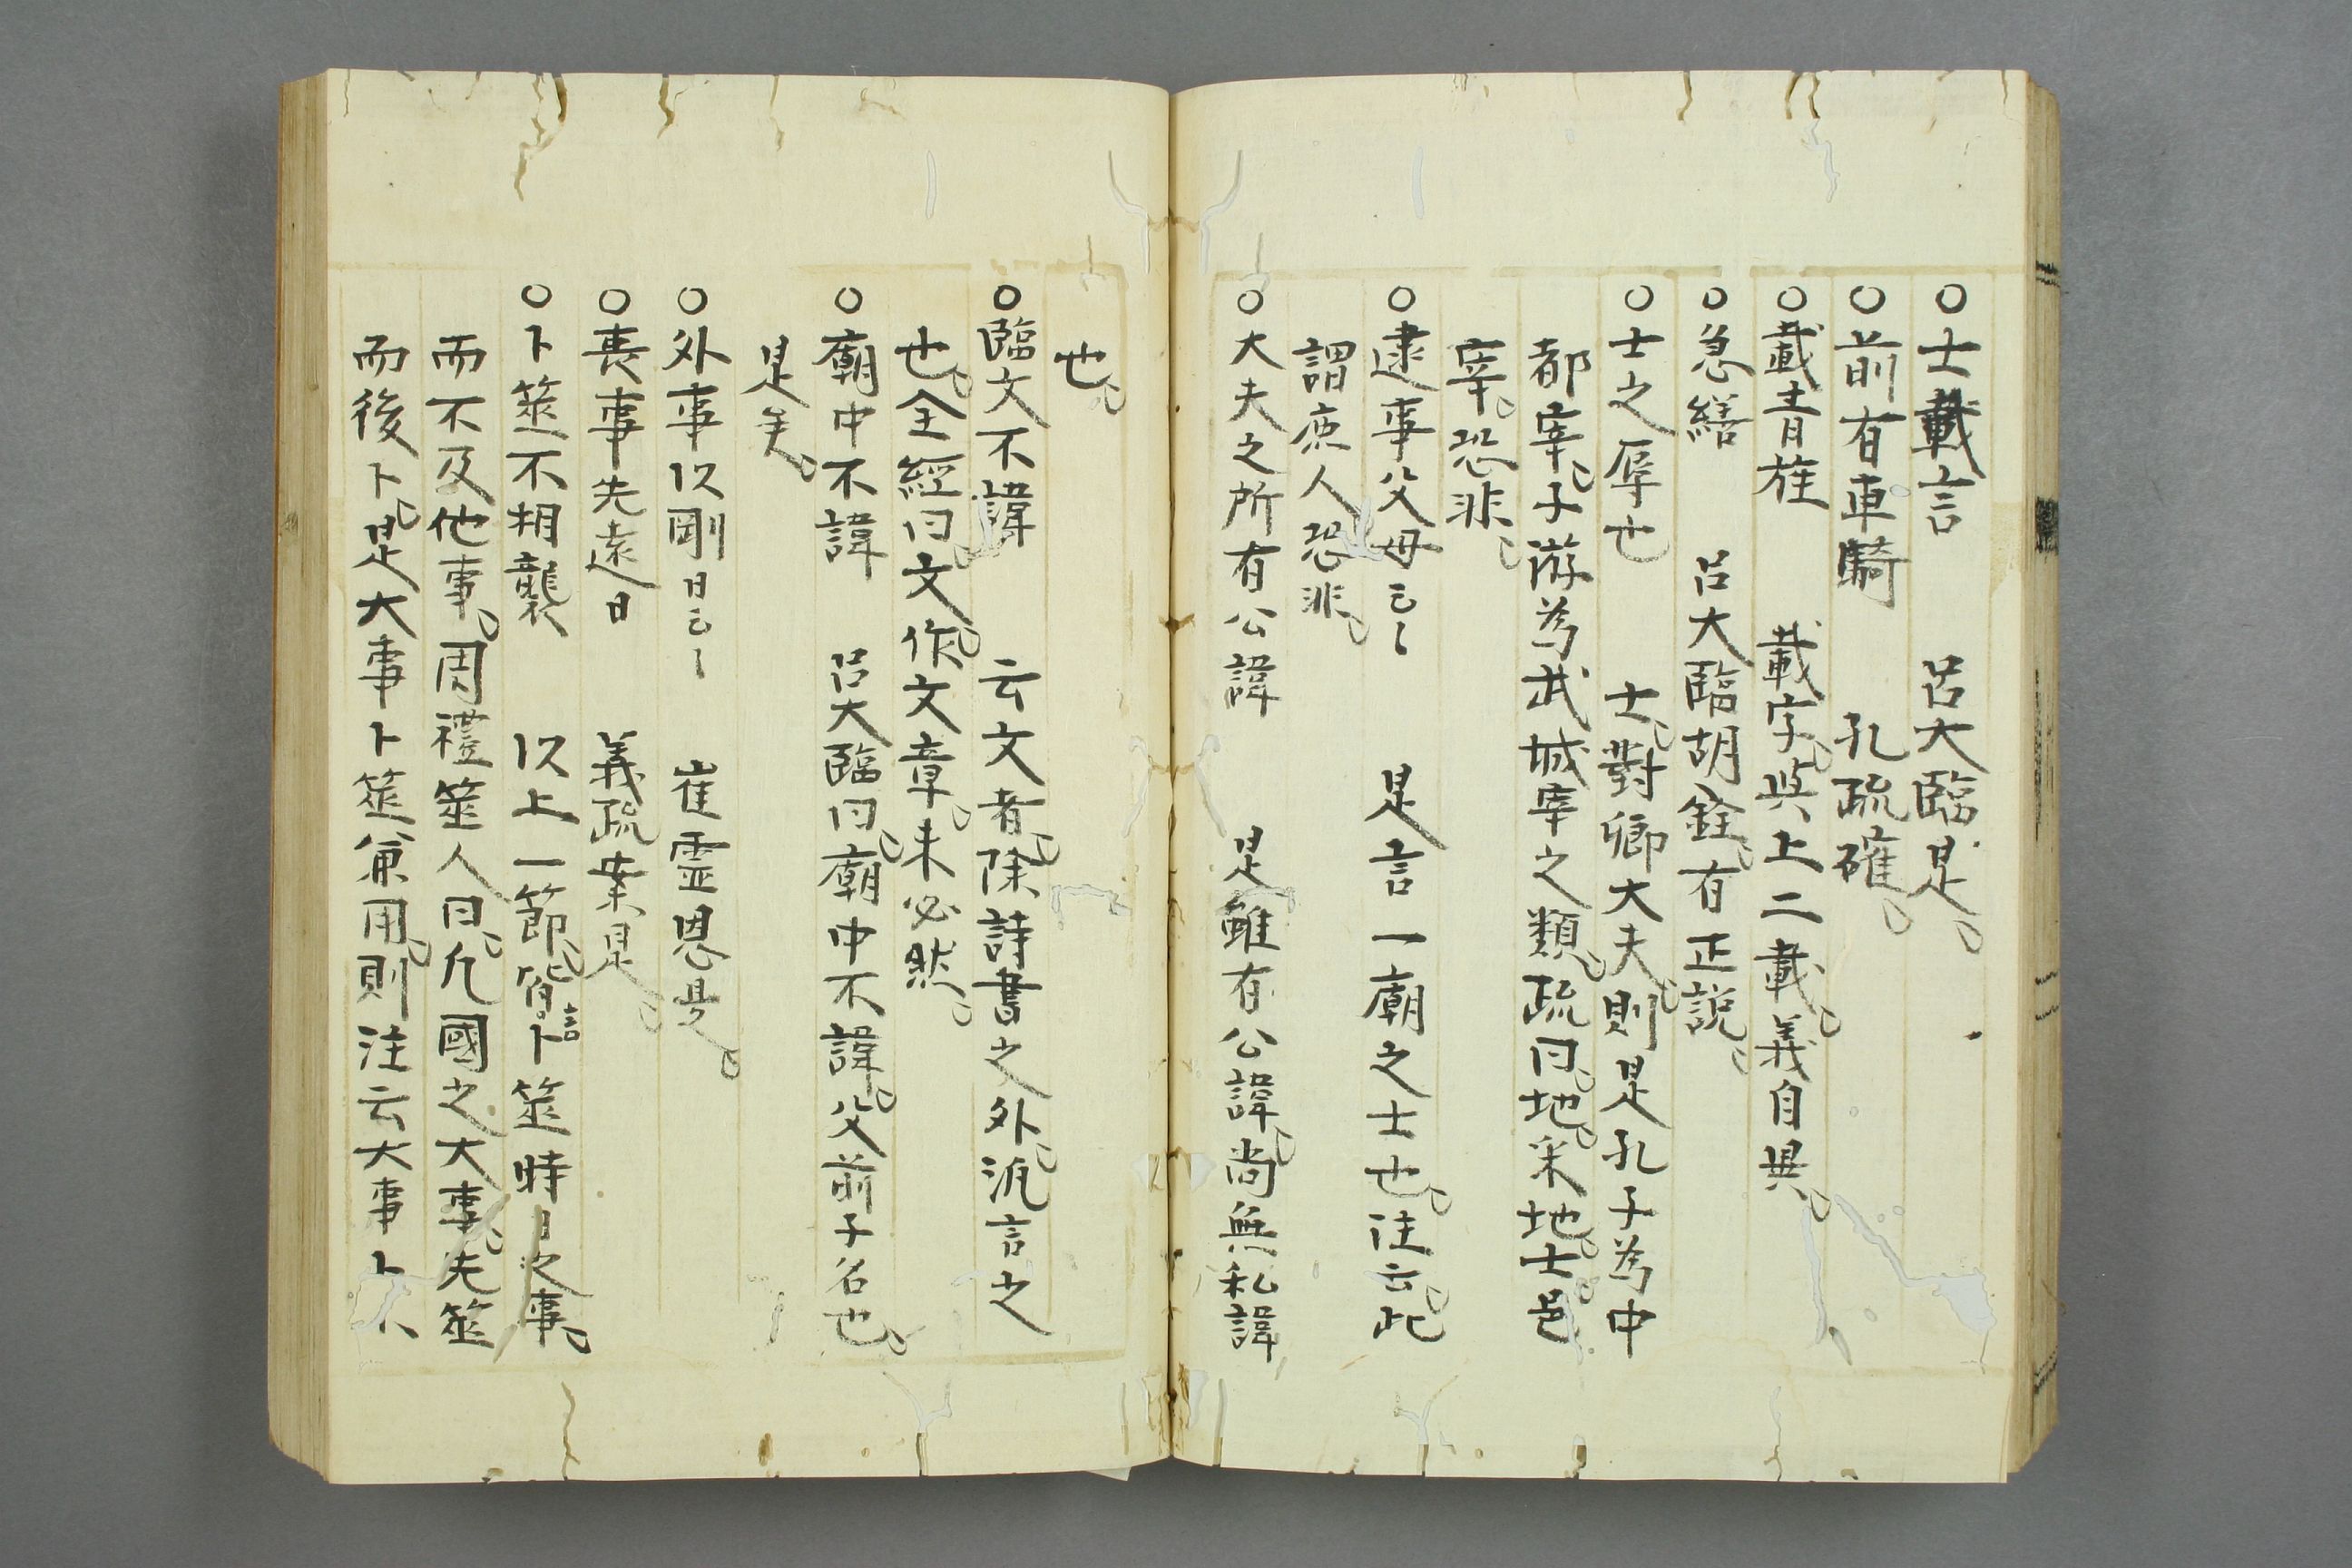 ○士載言　呂大臨是
○前有車騎　孔疏確
○載青旌　載字與上二載義自異
○急繕　呂大臨胡銓有正說
○士之辱也　士對卿大夫則是孔子為中
都宰子游為武城宰之類疏曰地采地士邑
宰恐非
○逮事父母云〻　是言一廟之士也注云此
謂庶人恐非
○大夫之所有公諱　是雖有公諱尚無私諱
也
○臨文不諱　云文者除詩書之外汎言之
也全經曰文作文章未必然
○廟中不諱　呂大臨曰廟中不諱父前子名也
是矣
○外事以剛日云〻　崔靈恩是
○喪事先遠日　義疏案是
○卜筮不相襲　以上一節皆言卜筮時日之事
而不及他事周禮筮人曰凡國之大事先筮
而後卜是大事卜筮兼用則注云大事卜